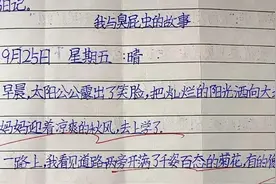 日记。
我与臭屁虫的故事
9月25日 星期五 晴
早晨,太阳公公露出了笑脸,把灿烂的阳光洒向大
妈妈迎着凉爽的秋风,去上学了。
一路上,我看见道路两旁开满了千姿百态的菊花,有的